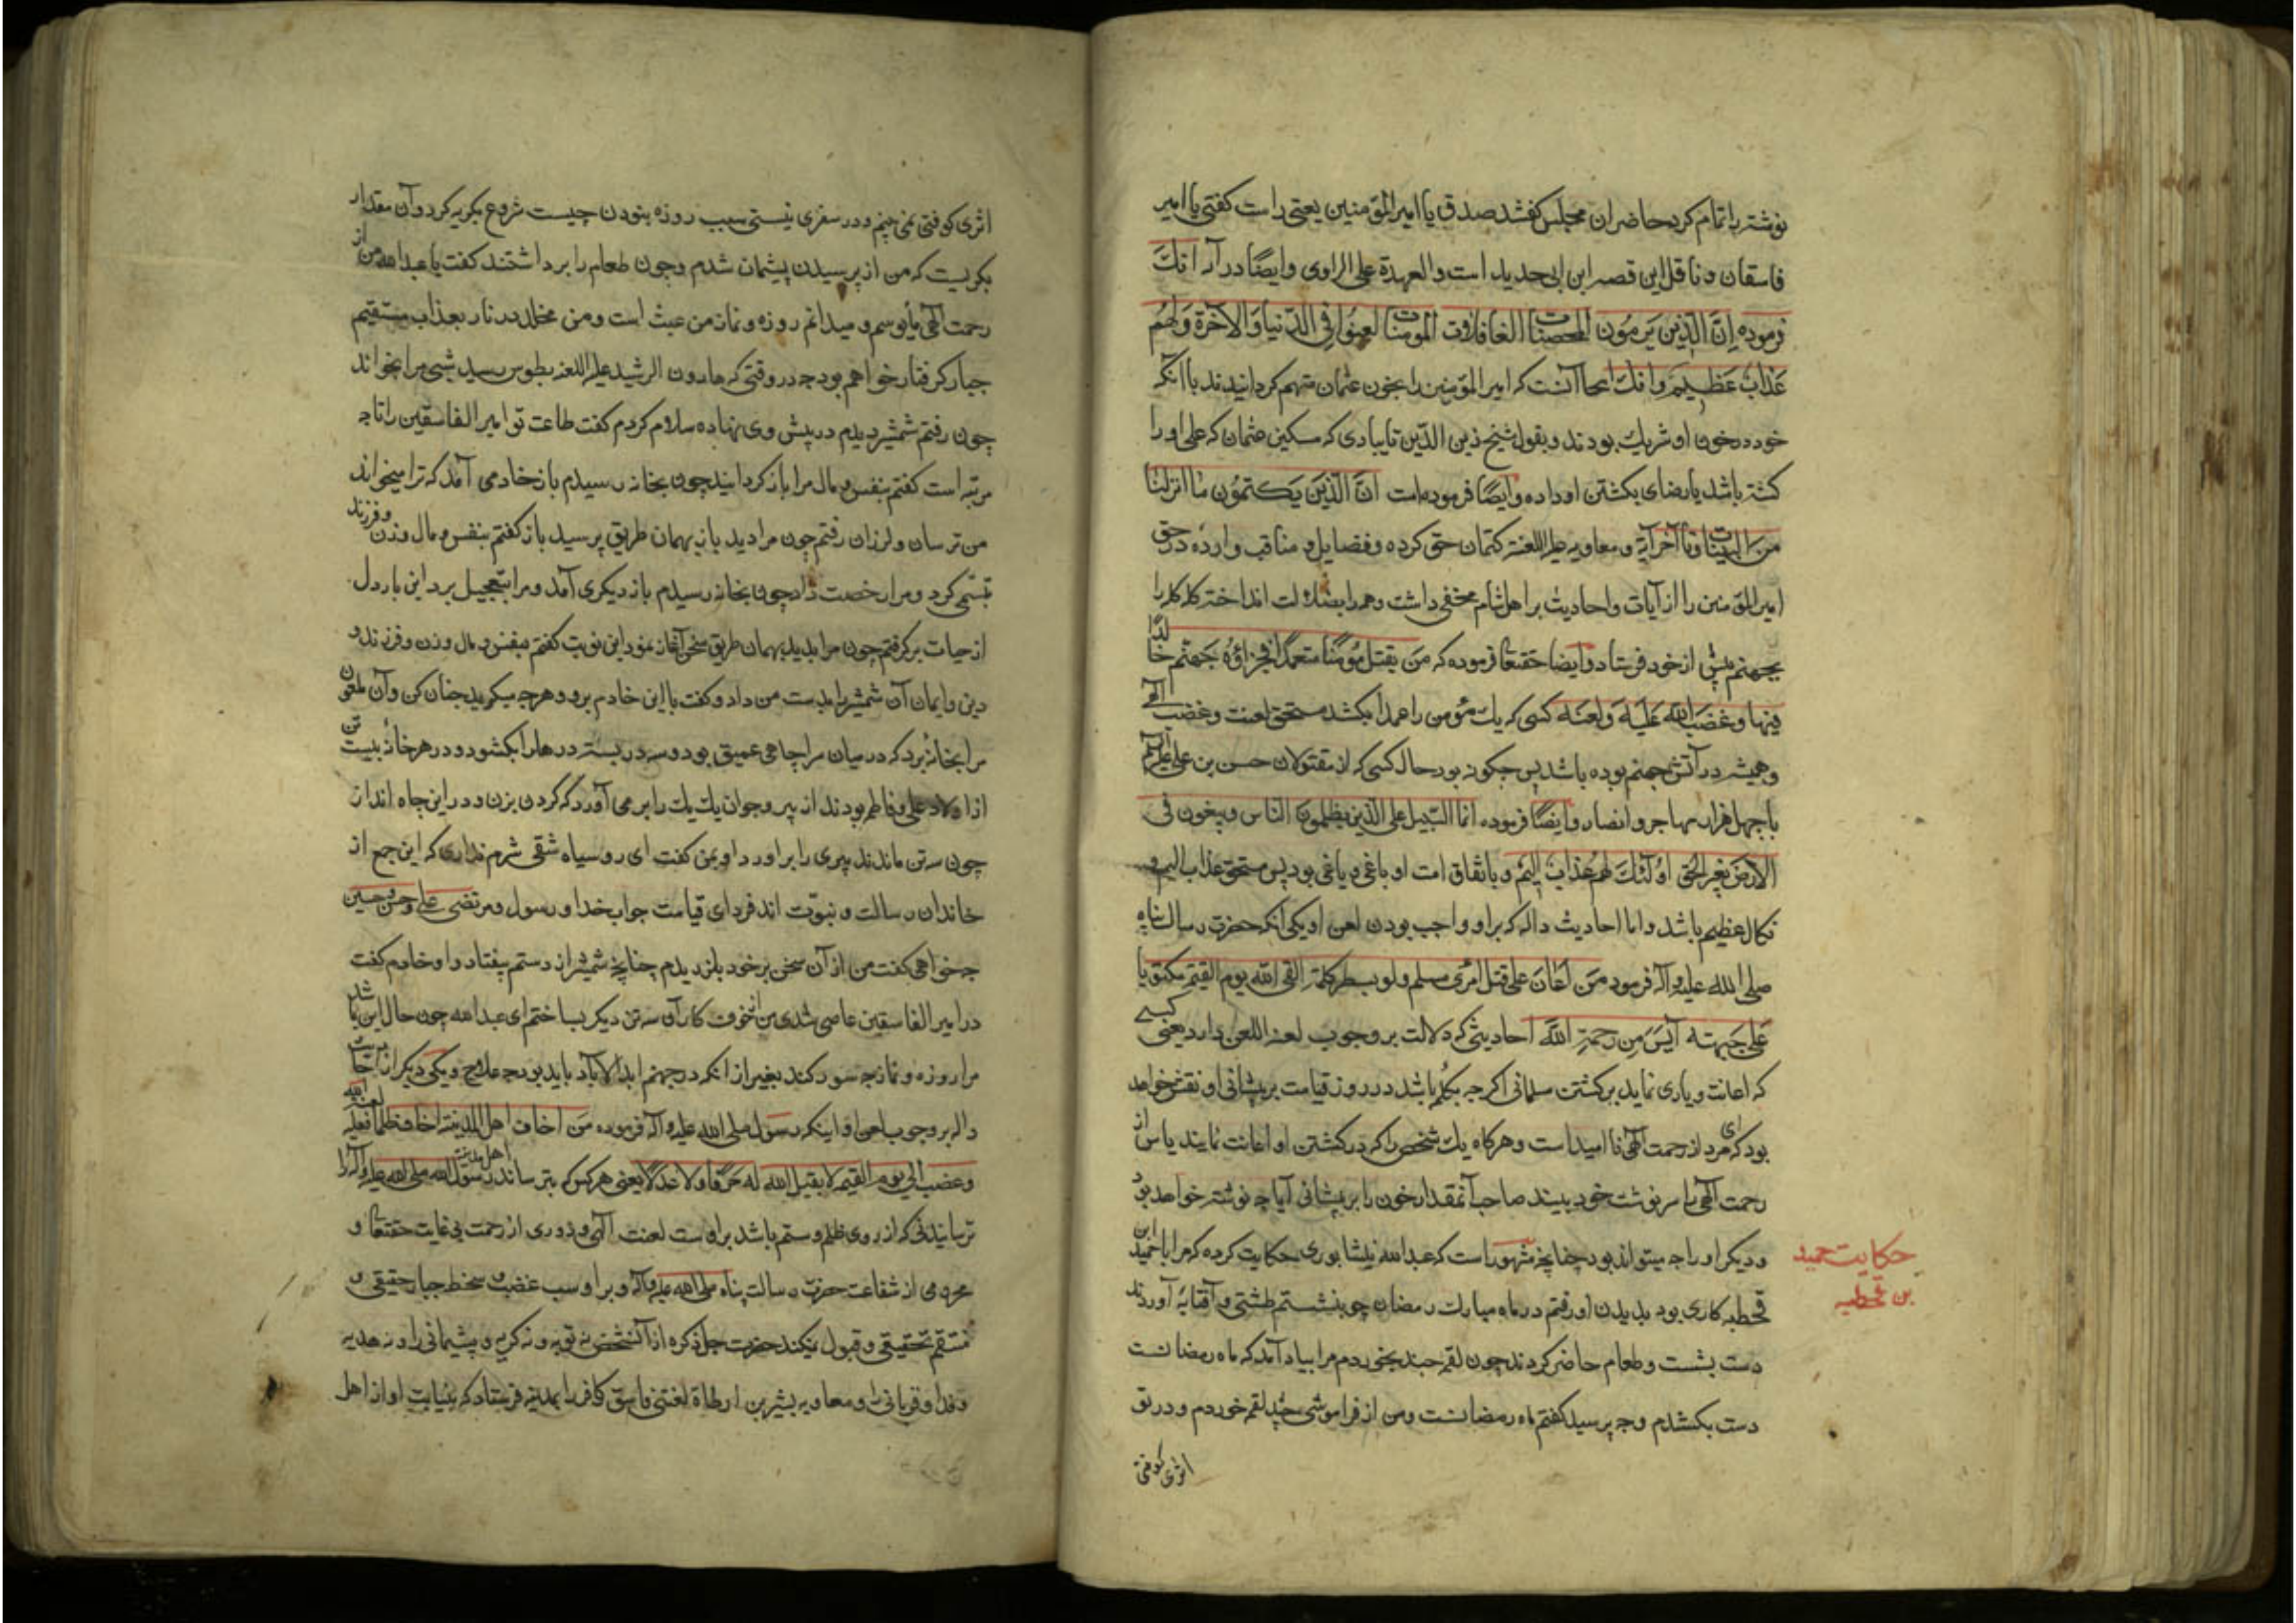 نوشته را تمام کرد حاضران مجلس گفتند صدق یا امیر المؤمنین یعنی راست گفتی یا امیر
فاسقان و ناقل این قصه ابن ابی حدید است والعهدة علی الراوی وایضًا در
فرموده اِنَّ الَّذین یَرمُون المحصنات الغافلات المومنات لعنُوا فِی الدّنیا وَالآخرة وَلَهُم
عَذابٌ عَظیم وافك آنست که امیر المؤمنین را بخون عثمان متهم کردانیدند با آنکه
خود در خون او شریك بودند وبقول شیخ زین الدّین تایبادی که مسکین عثمان که علی او را
کشته باشد یا رضای بکشتن او داده وایضًا فرموده است انَّ الَّذین یَکتمُون مٰا انزلنٰا
من البینات تا آخر آیة ومعاویه علیه اللعنة کتمان حق کرده وفضایل و مناقب وارده در حق
امیر المؤمنین را از آیات واحادیث بر اهل شام مخفی داشت وهمه را بضلالت انداخته کله کله را
بجهنم پیش از خود فرستاد وایضا حقتعا فرموده که مَن یقتل مؤمنًا متعمدًا فجزاؤُه جَهنّم خالدًا
فیها وغضب الله عَلَیه وَلعنَه کسی که یك مؤمن را عمدا بکشد مستحق لعنت وغضب الهی
وهمیشه در آتش جهنم بوده باشد پس چکونه بود حال کسی که از مقتولان حسن بن علی
با چهل هزار مهاجر وانصار وایضًا فرموده انما السّبیل علی الّذین یظلمون النّاس ویبغون فی
الارض بغیر الحق اوُلٰئك لهُم عَذابٌ اَلیم وباتفاق امت او باغی و یاغی بود پس مستحق عذاب الیم و
نکال عظیم باشد واما احادیث داله که بر او واجب بودن لعن او یکی آنکه حضرت رسالت پناه
صلی الله علیه وآله فرمود مَن اَعٰانَ علی قتل امرئ مسلم ولو بسطر کلمة القی الله یوم القیمة مکتوبًا
عَلی جَبهته آیسَ مِن رَحمةِ الله احادیثی که دلالت بر وجوب لعنه اللعین دارد یعنی کسے
که اعانت ویاری نماید بر کشتن مسلمانی اکر چه بکلمه باشد در روز قیامت بر پیشانی او نقش خواهد
بود که ای مرد از رحمت الهی نا امید است وهر کاه یك شخص را که در کشتن او اعانت نمایند یاس از
رحمت الهی با سرنوشت خود بیند صاحب آنمقدار خون را بر پیشانی آیا چه نوشته خواهد بود
ودیکر او را چه میتواند بود چنانچه مشهور است که عبدالله نیشابوری حکایت کرده که مرا با حمید ابن
قحطبه کاری بود بدیدن او رفتم در ماه مبارك رمضان چو بنشستم طشتی وآفتابه آوردند
دست بشست وطعام حاضر کردند چون لقمه چند بخوردم مرا بیاد آمد که ماه رمضانست
دست بکشیدم وچه پرسید کفتم ماه رمضانست ومن از فراموشی چند لقمه خوردم ودر تو
اثری کوفتی
حکایت حمید
بن قحطبه
اثری کوفتی نمی بینم ودر سفری نیستی سبب روزه نبودن چیست شروع بکریه کرد وآن مقدار
بکریست که من از پرسیدن پشیمان شدم وچون طعام را برداشتند کفت یا عبدالله من از
رحمت الهی مأیوسم ومیدانم روزه ونماز من عبث است ومن مخلد در نار بعذاب مستقیم
جبار کرفتار خواهم بود چه در وقتی که هارون الرشید علیه اللعنه بطوس رسید شبی مرا بخواند
چون رفتم شمشیر دیدم در پیش وی نهاده سلام کردم کفت طاعت تو امیر الفاسقین را تا چه
مرتبه است کفتم بنفس و مال مرا باز کردانید چون بخانه رسیدم باز خادمی آمد که ترا میخواند
من ترسان ولرزان رفتم چون مرا دید باز بهمان طریق پرسید باز کفتم بنفس و مال وزن وفرزند
تبسّمی کرد ومرا رخصت داد چون بخانه رسیدم باز دیکری آمد ومرا بتعجیل برد این بار دل
از حیات برکرفتم چون مرا بدید بهمان طریق سخن آغاز نمود این نوبت کفتم بنفس و مال وزن وفرزند و
دین وایمان آن شمشیر را بدست من داد وکفت با این خادم برو وهر چه میکوید چنان کن وآن ملعون
مرا بخانهٔ برد که در میان سرا چاهی عمیق بود وسه در بسته درها را بکشود ودر هر خانهٔ بیست تن
از اولاد علی وفاطمه بودند از پیر وجوان یك یك را بر می آورد که کردن بزن ودر این چاه انداز
چون سه تن ماندند پیری را برآورد او بمن کفت ای رو سیاه شقی شرم نداری که این جمع از
خاندان رسالت و نبوّت اند فردای قیامت جواب خدا و رسول ومرتضی علی وحسن وحسین
چه خواهی کفت من از آن سخن بر خود بلرزیدم چنانچه شمشیر از دستم بیفتاد واو خادم کفت
در امیر الفاسقین عاصی شدی من از خوف کار آن سه تن دیکر بساختم ای عبدالله چون حال این باشد
مرا روزه ونماز چه سود کند بغیر از انکه در جهنم ابد الآباد باید بود چه علاج ویکی دیکر از احادیث
داله بر وجوب لعن او اینکه رسول صلی الله علیه وآله فرموده مَن اخاف اهل المدینة اخافة ظلمًا فعلیه لعنة الله
وغضب الی یوم القیمة لا یقبل الله له صَرفًا ولا عَدلًا یعنی هر کس که بترساند اهل مدینه رسول الله صلی الله علیه وآله را
ترسانیدنی که از روی ظلم وستم باشد بر اوست لعنت الهی و دوری از رحمت بی غایت حقتعا و
محرومی از شفاعت حضرت رسالت پناه صلی الله علیه وآله وبر اوست غضب و سخط جبار حقیقی و
منتقم تحقیقی وقبول نمیکند حضرت جل ذکره از آنشخص نه توبه و نه کریه و پشیمانی را و نه هدیه
وفدا وقربانی را ومعاویه بشیر بن ارطاة لعنتی فاسق کافر را بمدینه فرستاد که بنیابت او از اهل